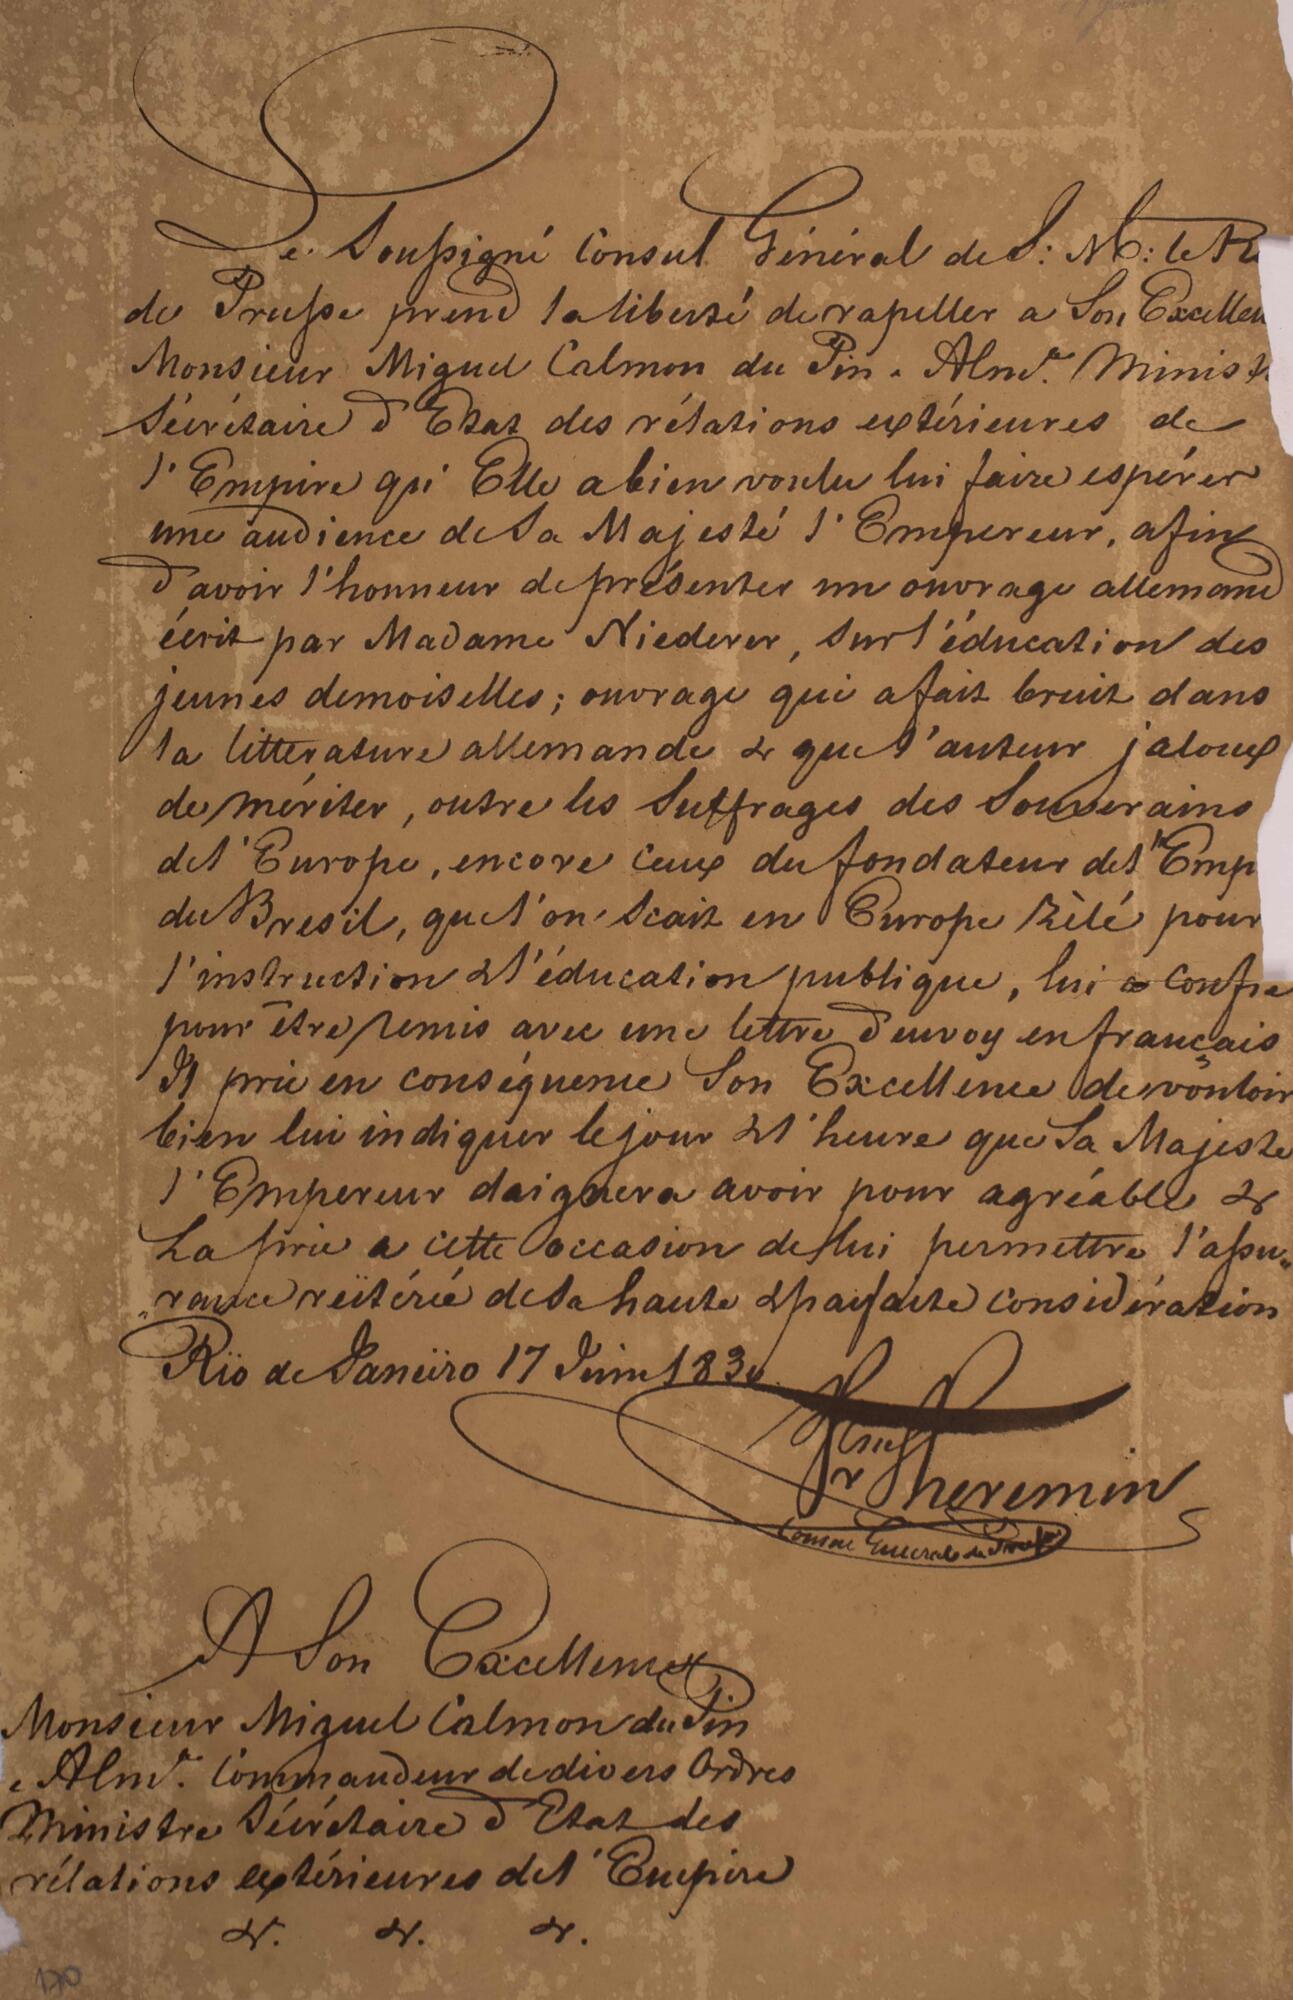 Le Soussigné Consul Général de S: M: le R
de Prusse prend la liberté de rapeller a Son Excellen
Monsieur Miguel Calmon du Pin e Almda. Minist
Sécrétaire d'Etat des rélations extérieures de
l'Empire qu'Elle a bien voulu lui faire espérer
une audience de Sa Majesté l'Empereur, afin
d'avoir l'honneur de présenter un ouvrage allemand
écrit par Madame Niederer, sur l'éducation des
jeunes demoiselles; ouvrage qui a fait bruit dans
la litterature allemande & que l'auteur jaloux
de mériter, outre les Suffrages des Souverains
de l'Europe, encore ceux du fondateur de l'Emp
du Bresil, que l'on Scait en Europe Zèlé pour
l'instruction & l'éducation publique, lui a confie
pour être remis avec une lettre d'envoy en français
Il prie en conséquence Son Excellence de vouloir
bien lui indiquer le jour & l'heure que Sa Majeste
l'Empereur daignera avoir pour agréable &
La prie a cette occasion de lui permettre l'assu-
"rance reïtérée de Sa haute & parfaite considération
Rïo de Janeïro 17 Juin 1830
Theremin
Consul Général de Prusse
A Son Excellence
Monsieur Miguel Calmon du Pin
e Almda. Commandeur de divers Ordres
Ministre Sécrétaire d'Etat des
rélations extérieures de l'Empire
&. &. &.
170